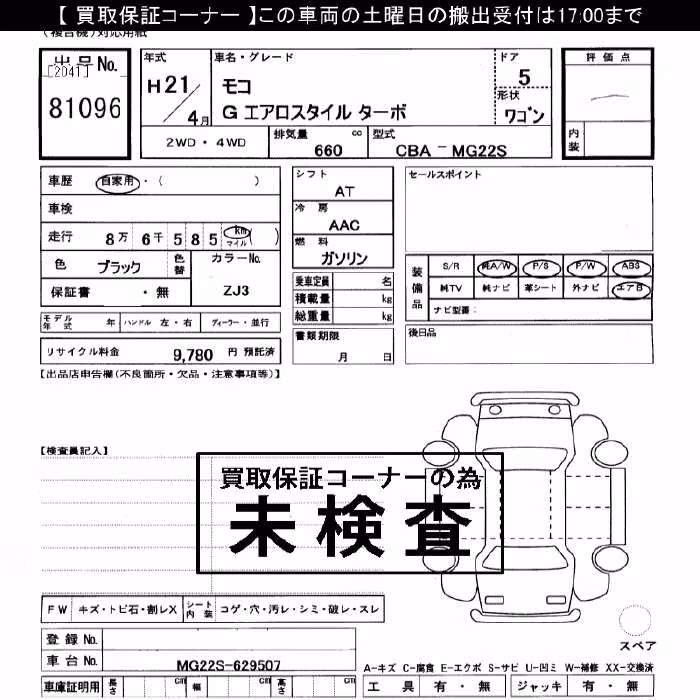 【 買取保証コーナー 】この車両の土曜日の搬出受付は17:00まで
(複合機)対応用紙
出品No.
[2041]
81096
年式
H21/4月
車名・グレード
モコ
G エアロスタイル ターボ
ドア
5
形状
ワゴン
評価点
内装
2WD・4WD
排気量 660 cc
型式 CBA-MG22S
車歴 自家用・( )
車検
走行 8万 6千 5 8 5 km マイル ( )
色 ブラック 色替 カラーNo. ZJ3
保証書 ・無
モデル年式 年 ハンドル 左・右 ディーラー・並行
リサイクル料金 9,780 円 預託済
シフト AT
冷房 AAC
燃料 ガソリン
乗車定員 名
積載量 kg
総重量 kg
書類期限 月 日
セールスポイント
装備品 S/R 純A/W P/S P/W ABS
純TV 純ナビ 革シート 外ナビ エアB
ナビ型番:
後日品
【出品店申告欄(不良箇所・欠品・注意事項等)】
【検査員記入】
買取保証コーナーの為
未検査
FW キズ・トビ石・割レX シート内装 コゲ・穴・汚レ・シミ・破レ・スレ
登録No.
車台No. MG22S-629507
車庫証明用 長さ cm 幅 cm 高さ cm
スペア
A-キズ C-腐食 E-エクボ S-サビ U-凹ミ W-補修 XX-交換済
工具 有・無 ジャッキ 有・無